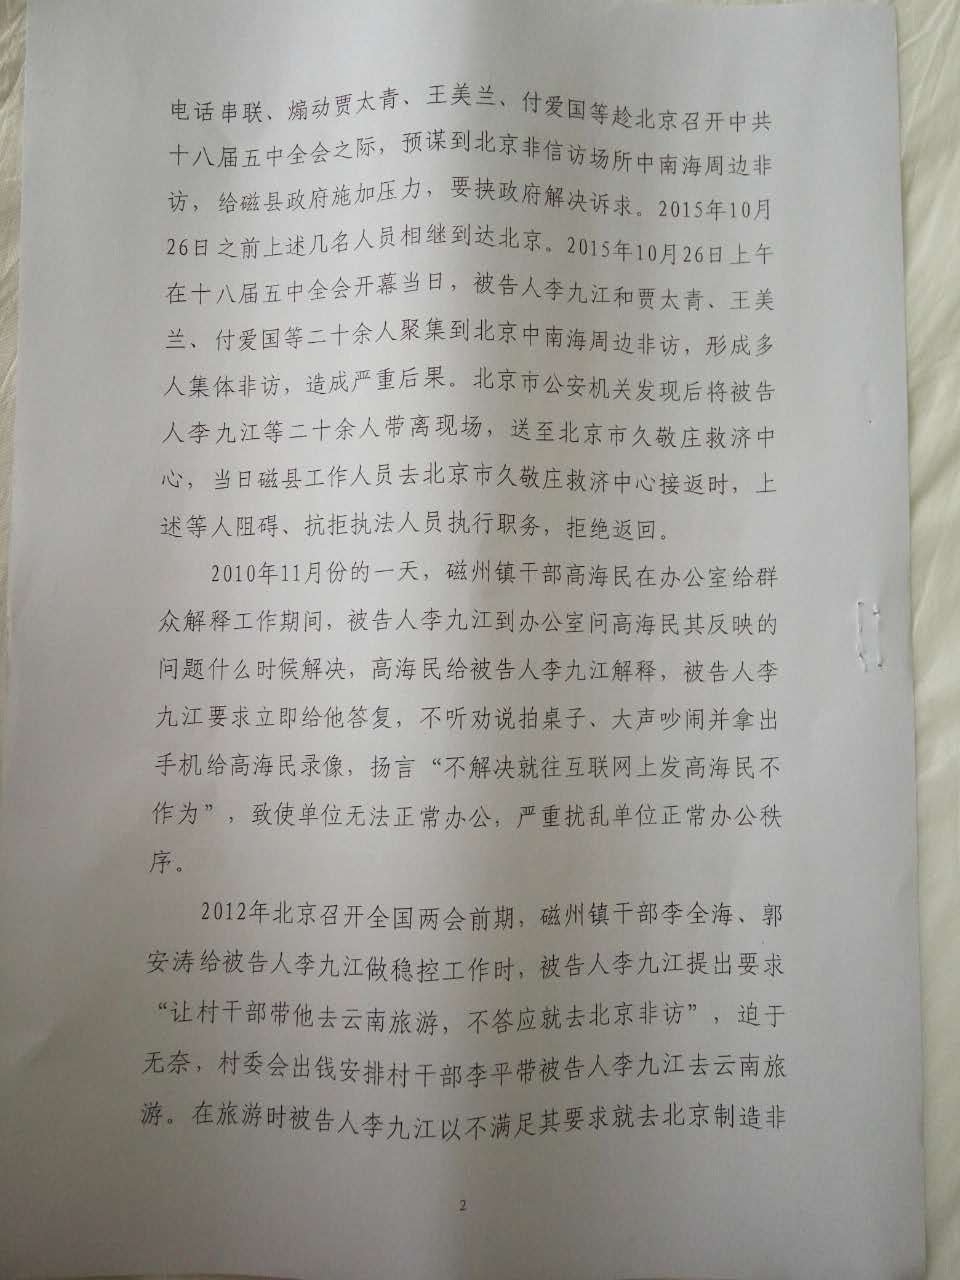 电话串联、煽动贾太青、王美兰、付爱国等趁北京召开中共
十八届五中全会之际，预谋到北京非信访场所中南海周边非
访，给磁县政府施加压力，要挟政府解决诉求。2015年10月
26日之前上述几名人员相继到达北京。2015年10月26日上午
在十八届五中全会开幕当日，被告人李九江和贾太青、王美
兰、付爱国等二十余人聚集到北京中南海周边非访，形成多
人集体非访，造成严重后果。北京市公安机关发现后将被告
人李九江等二十余人带离现场，送至北京市久敬庄救济中
心，当日磁县工作人员去北京市久敬庄救济中心接返时，上
述等人阻碍、抗拒执法人员执行职务，拒绝返回。
2010年11月份的一天，磁州镇干部高海民在办公室给群
众解释工作期间，被告人李九江到办公室问高海民其反映的
问题什么时候解决，高海民给被告人李九江解释，被告人李
九江要求立即给他答复，不听劝说拍桌子、大声吵闹并拿出
手机给高海民录像，扬言“不解决就往互联网上发高海民不
作为”，致使单位无法正常办公，严重扰乱单位正常办公秩
序。
2012年北京召开全国两会前期，磁州镇干部李全海、郭
安涛给被告人李九江做稳控工作时，被告人李九江提出要求
“让村干部带他去云南旅游，不答应就去北京非访”，迫于
无奈，村委会出钱安排村干部李平带被告人李九江去云南旅
游。在旅游时被告人李九江以不满足其要求就去北京制造非
2